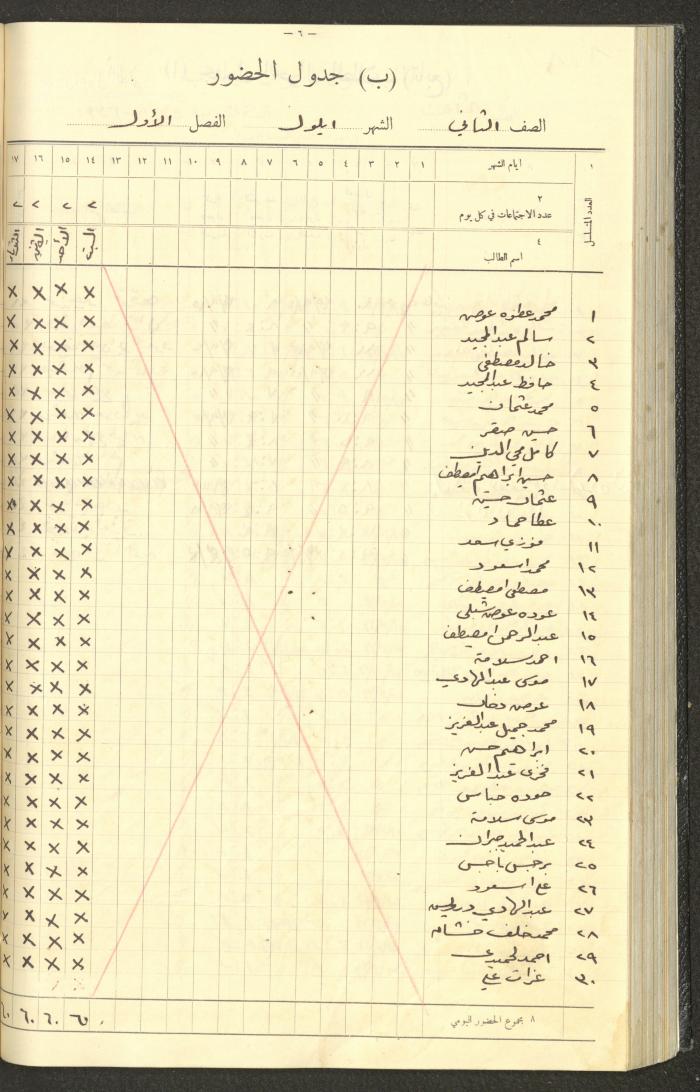 - ٦ -
(ب) جدول الحضور
الصف الثاني الشهر ايلول الفصل الأول
١ ايام الشهر ١ ٢ ٣ ٤ ٥ ٦ ٧ ٨ ٩ ١٠ ١١ ١٢ ١٣ ١٤ ١٥ ١٦ ١٧
العدد المتسلسل
٢
عدد الاجتماعات في كل يوم ٢ ٢ ٢ ٢
٤
اسم الطالب السبت الأحد
١ محمد عطوه عوض x x x x
٢ سالم عبد المجيد x x x x
٣ خالد مصطفى x x x x
٤ حافظ عبد المجيد x x x x
٥ محمد عثمان x x x x
٦ حسين صقر x x x x
٧ كامل محي الدين x x x x
٨ حسين ابراهيم x x x x
٩ عثمان حسين x x x x
١٠ عطا حماد x x x x
١١ فوزي سعد x x x x
١٢ محمد اسعود x x x x
١٣ مصطفى x x x x
١٤ عوده عوض شبلي x x x x
١٥ عبد الرحمن x x x x
١٦ احمد سلامة x x x x
١٧ موسى عبد الهادي x x x x
١٨ عوض x x x x
١٩ محمد جميل عبد العزيز x x x x
٢٠ ابراهيم حسن x x x x
٢١ فخري عبد العزيز x x x x
٢٢ حوده x x x x
٢٣ موسى سلامة x x x x
٢٤ عبد الحميد جبران x x x x
٢٥ برجس x x x x
٢٦ علي اسعود x x x x
٢٧ عبد الهادي درويش x x x x
٢٨ محمد خلف x x x x
٢٩ احمد x x x x
٣٠ عزات علي x x x x
٨ مجموع الحضور اليومي ٦٠ ٦٠ ٦٠